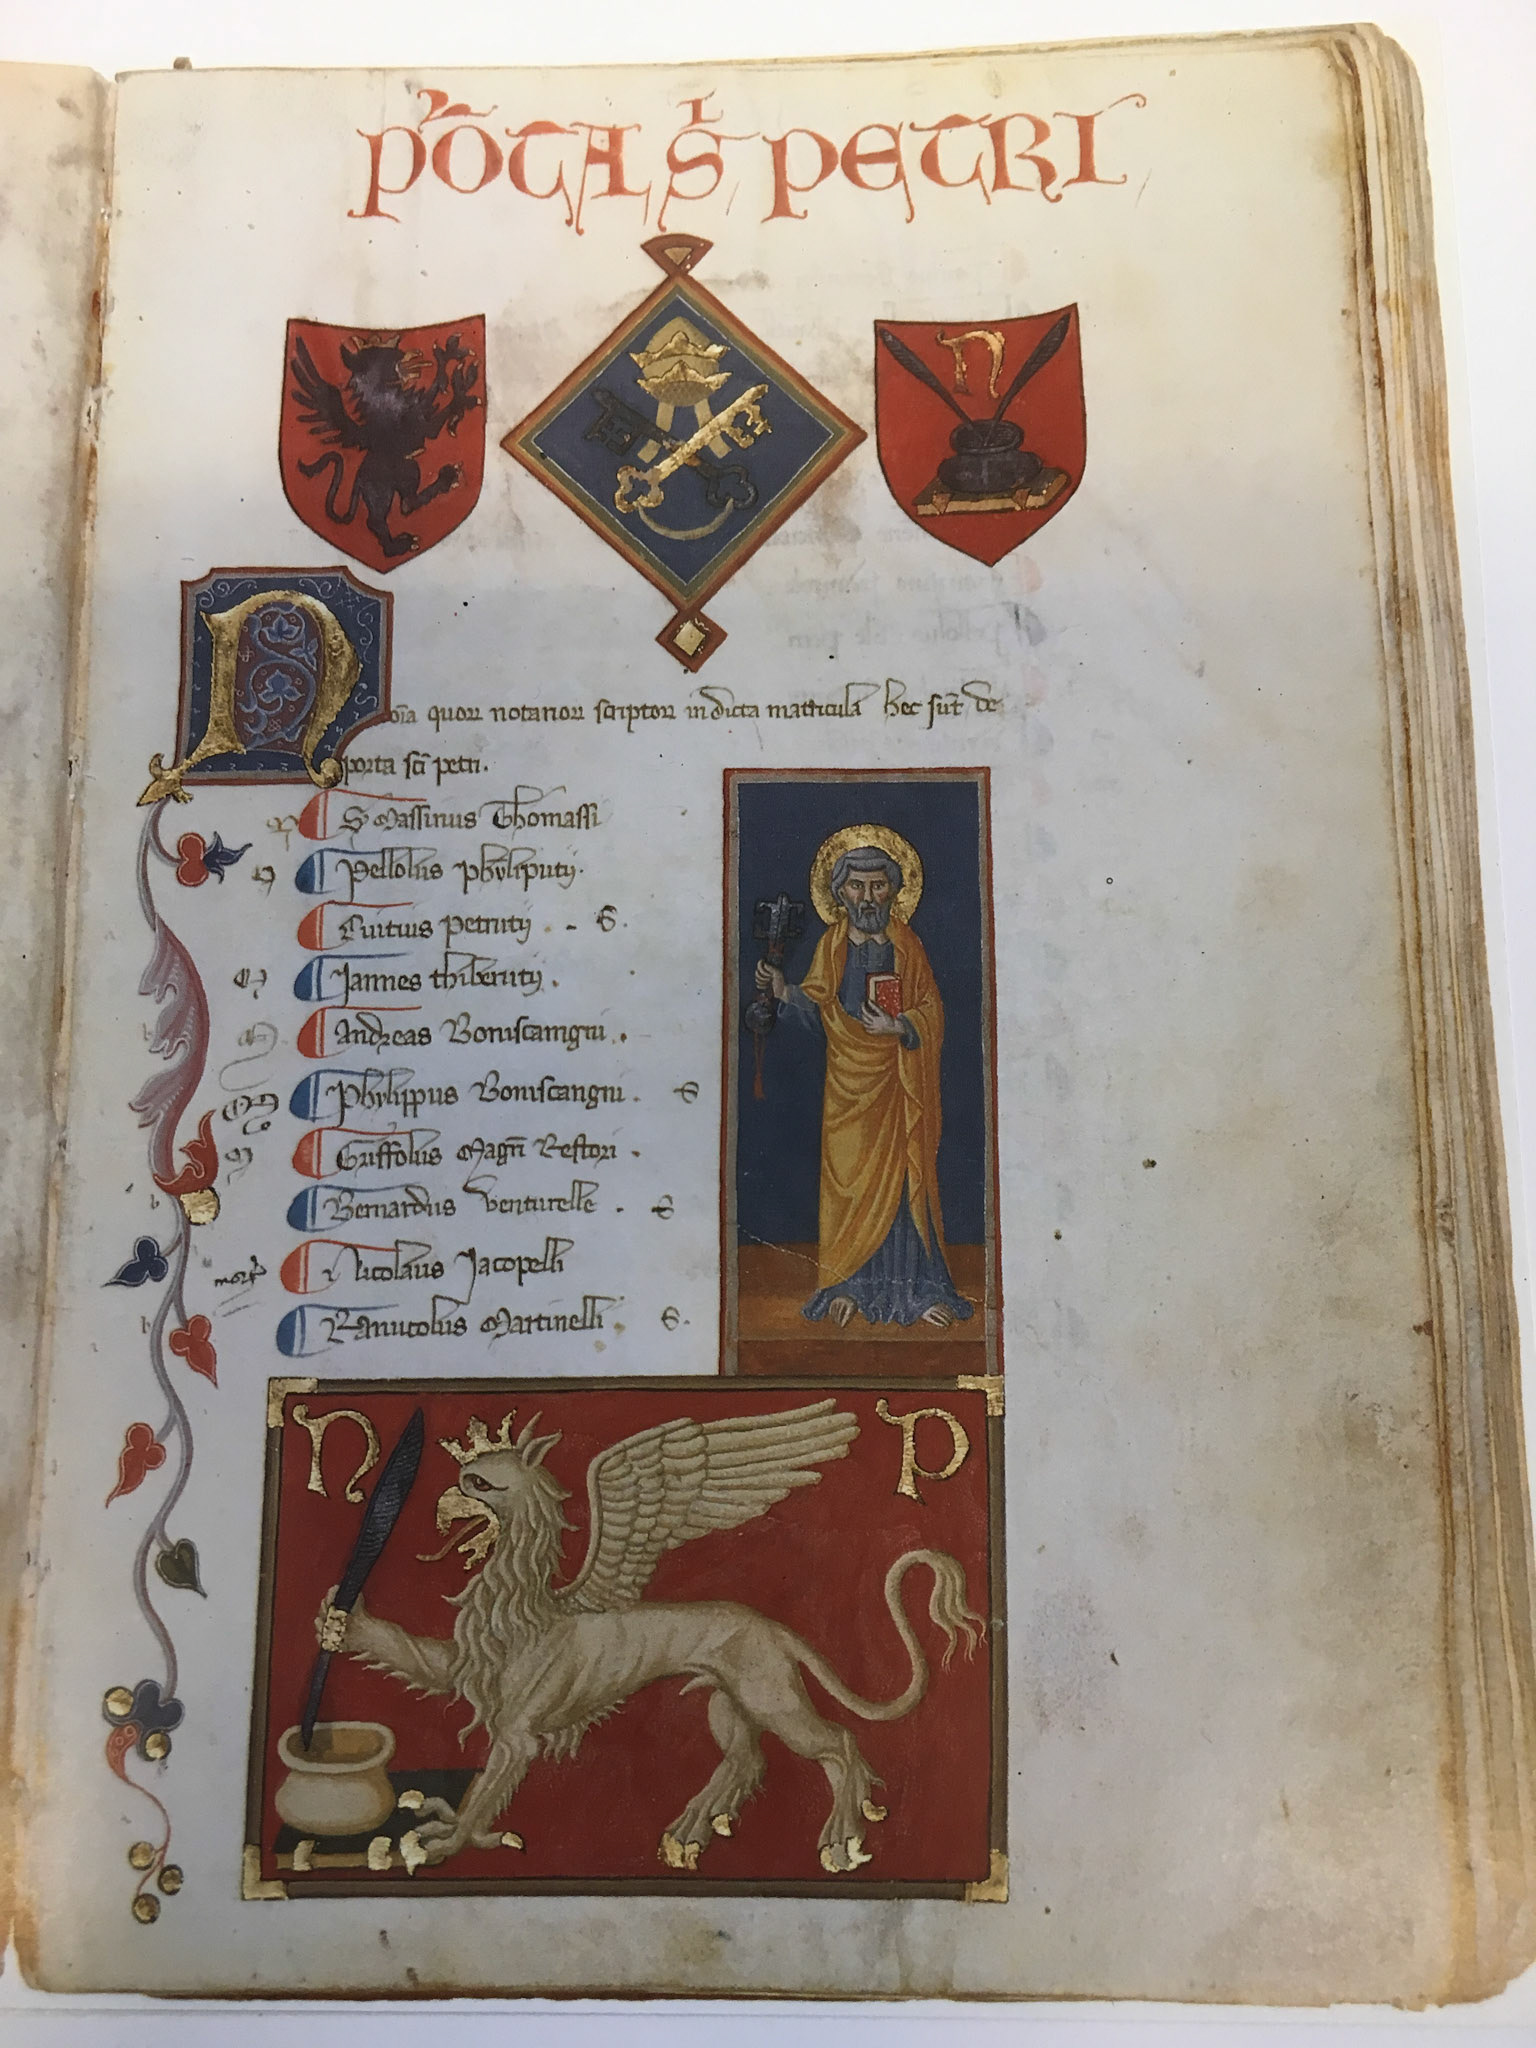 PORTA S PETRI
N
Noīa quoꝝ notarioꝝ scriptoꝝ in dicta matricula hec sūt de
porta scī petri.
S Massinus Thomassi
Pellolus phyliputij.
Cuitius petrutij . - S.
Jannes thiberutij .
Andreas Boniscamgni .
Phylippus Boniscangni . S
Griffolus Magñ Restori .
Bernardus venturelle . S
mort Nicolaus Jacopelli
Ranutolus Martinelli . S.
N P